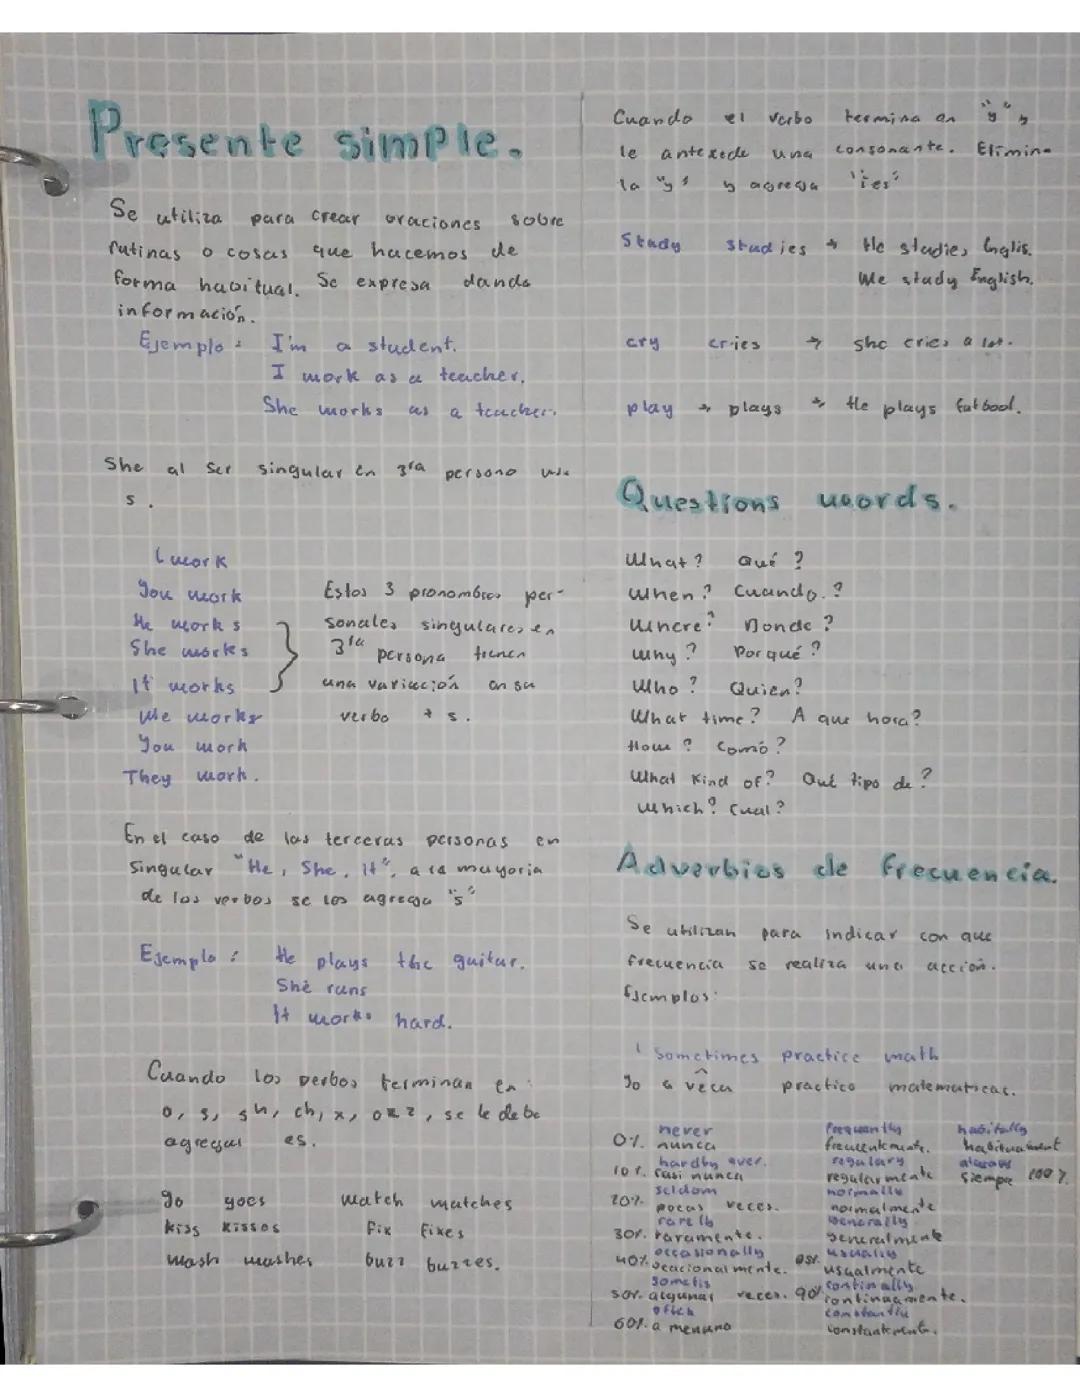 Presente simple.
Se utiliza para crear oraciones sobre
rutinas o cosas que hacemos de
forma habitual. Se expresa dando
información.
Ejemplo: I'm a student.
I work as a teacher.
She works as a teacher.
She al ser singular en 3ra persona usa
s.
I work
You work
He works
She works
It works
We works
You work
They work.
Estos 3 pronombres per-
sonales singulares en
3ra persona tienen
una variación en su
verbo + s.
En el caso de las terceras personas en
singular "He, She, It", a la mayoria
de los verbos se los agrega "s"
Ejemplo: He plays the guitar.
She runs
It works hard.
Cuando los verbos terminan en:
o, s, sh, ch, x, o z, se le debe
agregar es.
go goes match matches
kiss kisses fix fixes
wash washes buzz buzzes.
Cuando el verbo termina en "y" y
le antexede una consonante. Elimina
la "y" y agrega "ies"
Study studies → He studies Inglis.
We study English.
cry cries → she cries a lot.
play → plays → He plays futbool.
Questions words.
What? Qué?
When? Cuando.?
Where? Donde?
Why? Porqué?
Who? Quien?
What time? A que hora?
How? Comó?
What kind of? Qué tipo de?
which? Cual?
Adverbios de frecuencia.
Se utilizan para indicar con que
frecuencia se realiza una acción.
Ejemplos:
I sometimes practice math
Yo a veces practico matematicas.
never
0%. nunca
hardby ever.
10%. casi nunca
seldom
20%. pocas veces.
rarelb
30%. raramente.
occasionally
40%. ocacionalmente.
sometis
50%. algunas veces.
often
60%. a menuno
frequently
frecuentemente.
regulary
regularmente
normally
normalmente
generally
generalmente
usually
85%. usualmente
continally
90% continuamente.
constantlu
constantement.
habitally
habitualment
always
siempre 100%.